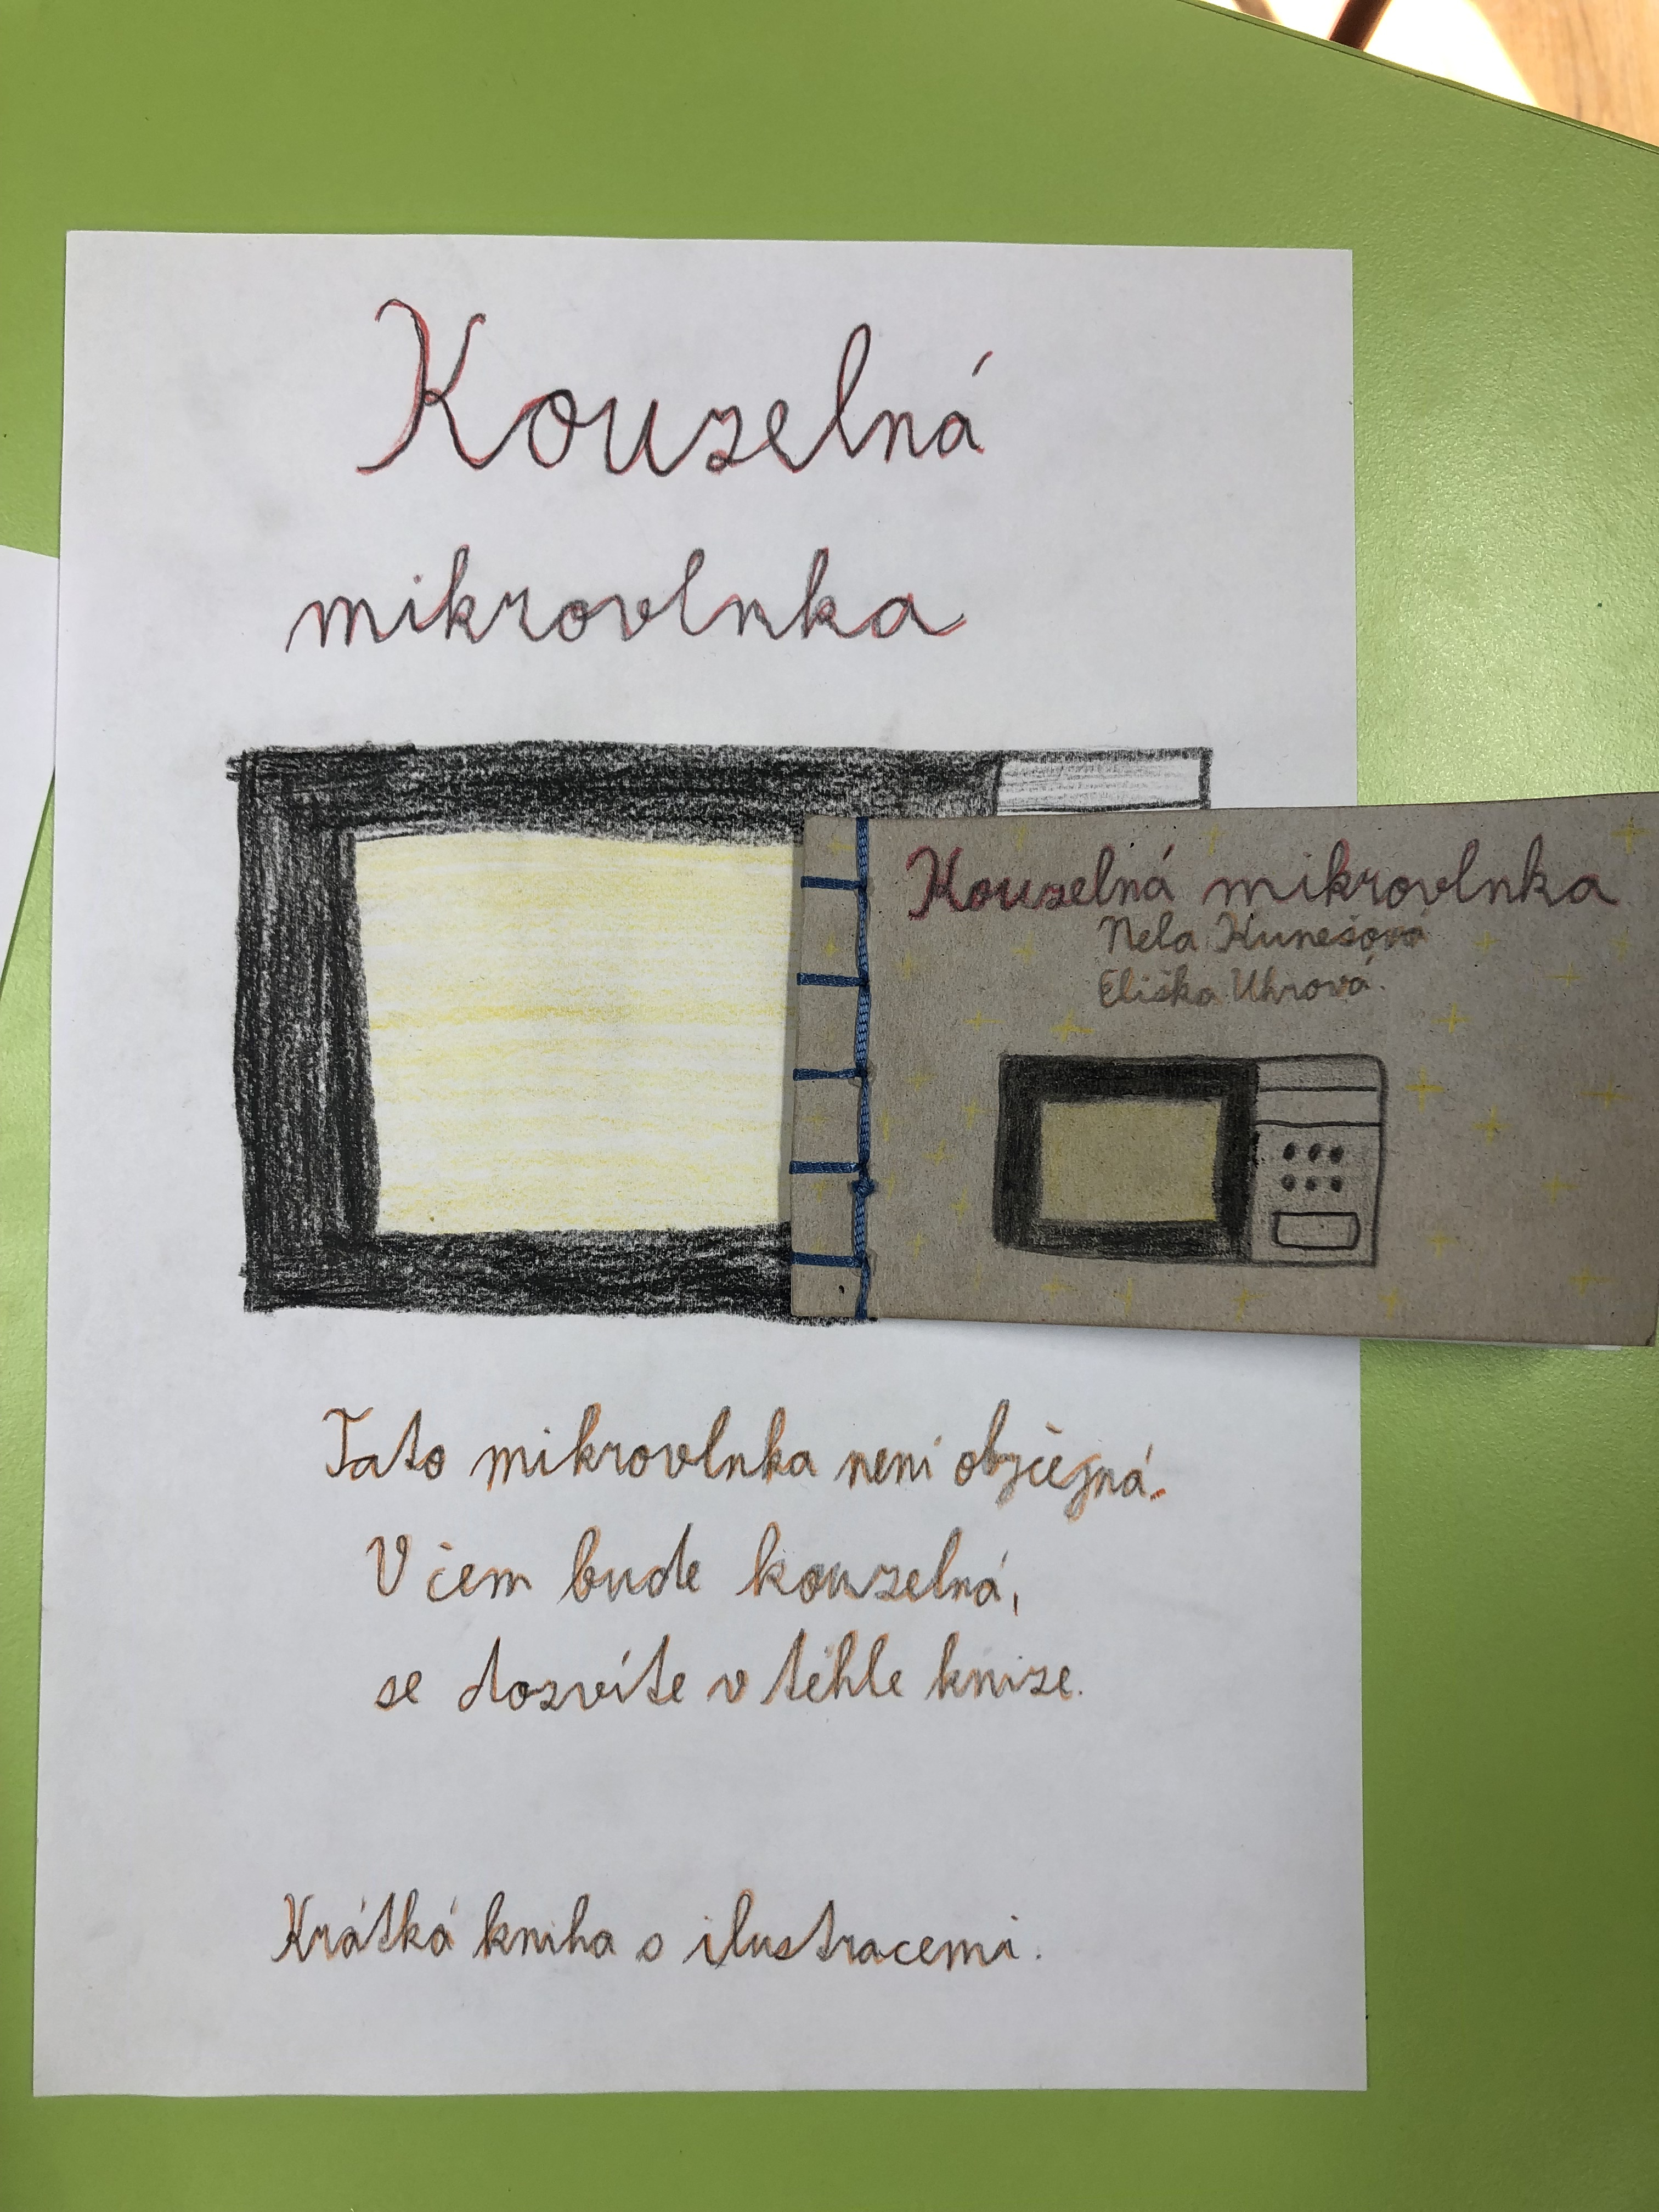 Kouzelná
mikrovlnka
Kouzelná mikrovlnka
Nela Kunešová
Eliška Uhrová.
Tato mikrovlnka není obyčejná.
V čem bude kouzelná,
se dozvíte v téhle knize.
Krátká kniha s ilustracemi.